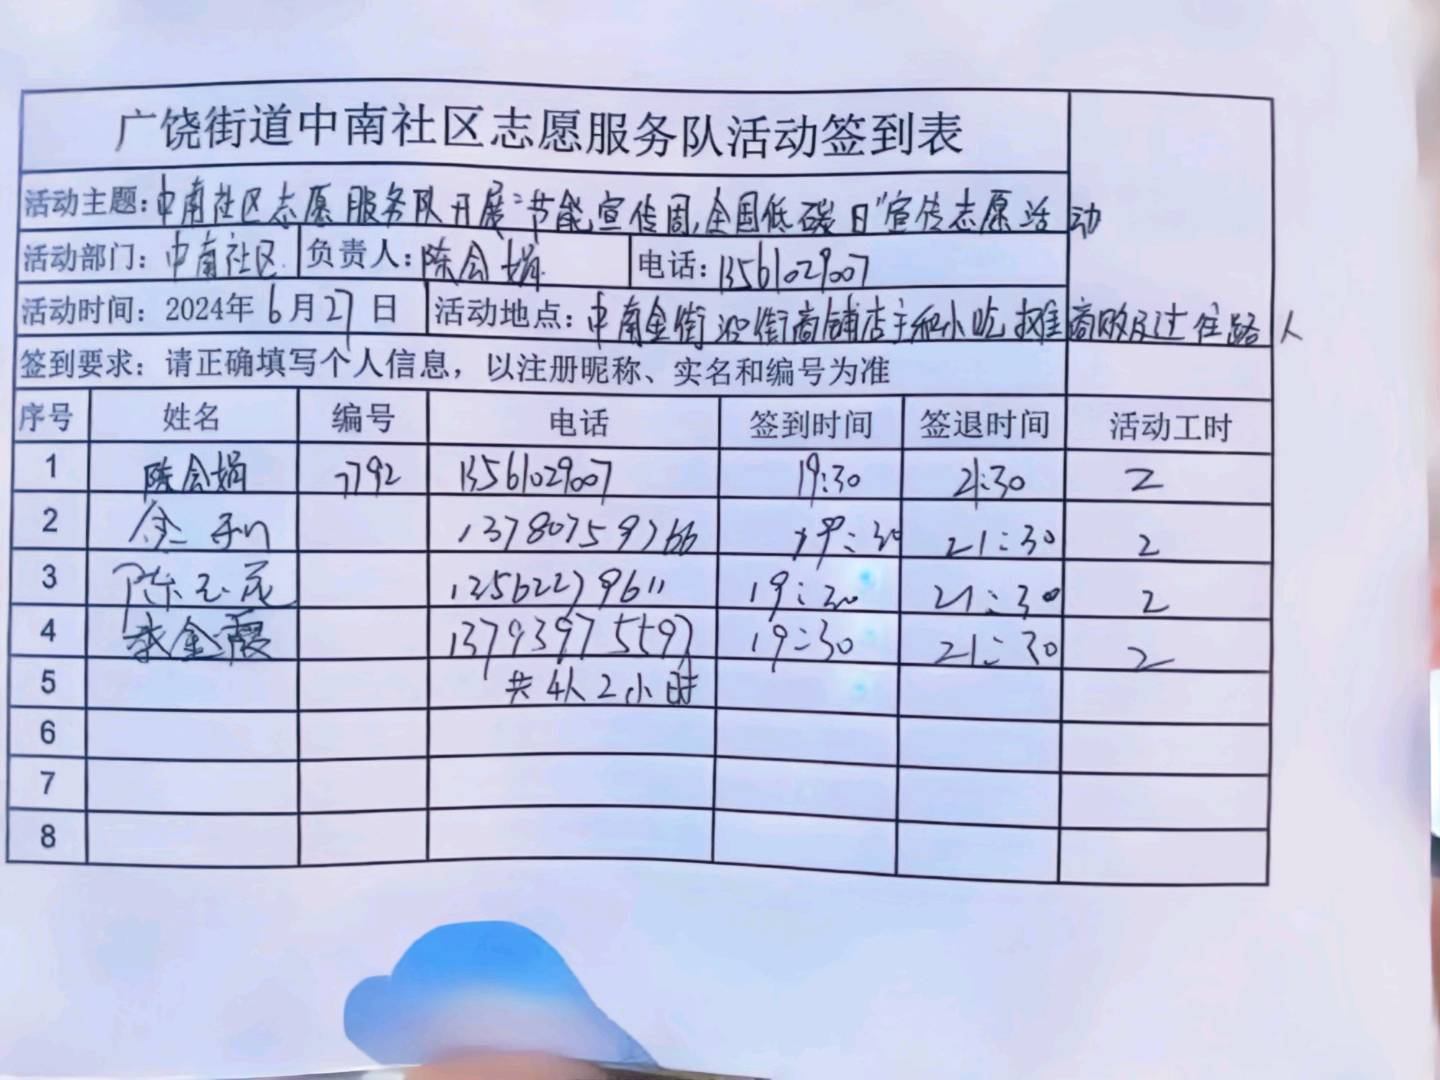 广饶街道中南社区志愿服务队活动签到表
活动主题:中南社区志愿服务队开展“节能宣传周,全国低碳日”宣传志愿活动
活动部门:中南社区 负责人:陈会娟 电话:13561029007
活动时间:2024年6月27日 活动地点:中南金街沿街商铺店主和小吃摊商贩及过往路人
签到要求:请正确填写个人信息,以注册昵称、实名和编号为准
序号 姓名 编号 电话 签到时间 签退时间 活动工时
1 陈会娟 7792 13561029007 19:30 21:30 2
2 13780759766 19:30 21:30 2
3 陈玉花 13562279611 19:30 21:30 2
4 李金霞 13793975597 19:30 21:30 2
5 共4人2小时
6
7
8